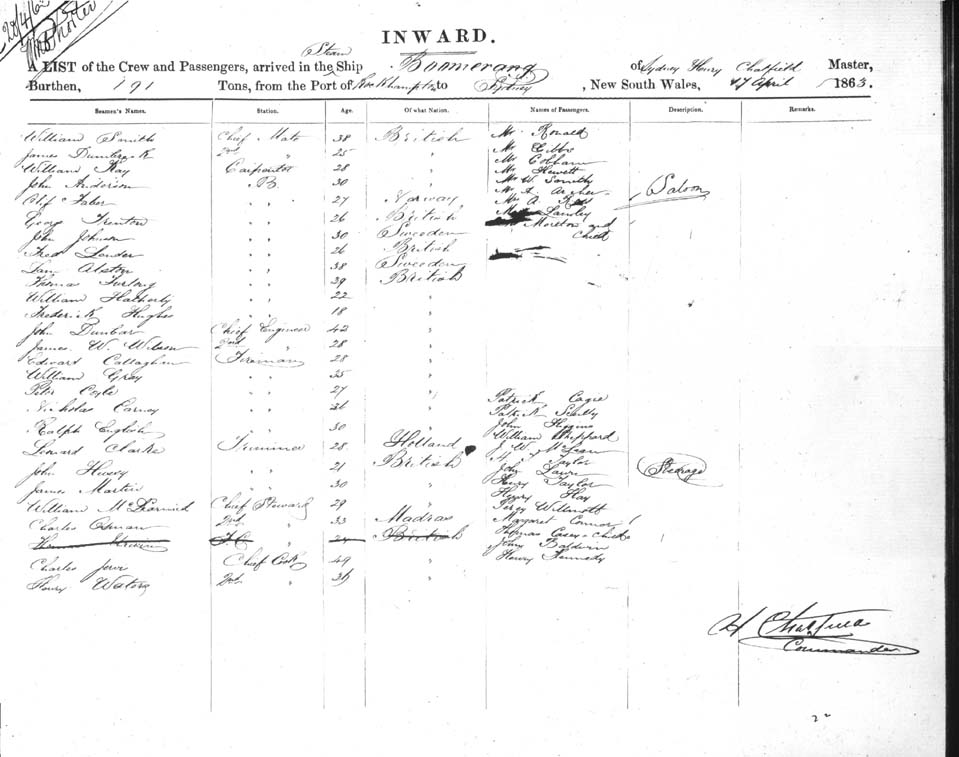 INWARD.
A LIST of the Crew and Passengers, arrived in the Steam Ship Boomerang of Sydney Henry Chatfield Master,
Burthen, 191 Tons, from the Port of Rockhampton to Sydney, New South Wales, 27 April 1863.
Seamen's Names. Station. Age. Of what Nation. Names of Passengers. Description. Remarks.
William Smith Chief Mate 38 British Mr Ronald
James 2nd " 25 " Mr Gibbs
William Kay Carpenter 28 " Mr Cobham
John Anderson A.B. 30 " Mr Hewett
Olif Faber " " 27 Norway Mr W. Smith
Georg Trenton " " 26 British Mr A. Archer Saloon
John Johnson " " 30 Sweeden Mr A. Ross
Fred " " 26 British Lamley
Alston " " 38 Sweeden Moreton and Child
Thomas Furlong " " 39 British
William Hatherly " " 22 "
Frederick Hughes " " 18 "
John Dunbar Chief Engineer 42 "
James W. Wilson 2nd " 28 "
Edward Callaghan Fireman 28 "
William Gray " " 35 "
Peter Coyle " " 27 "
Nicholas Carney " " 36 " Patrick Cagre
Ralph English " " 30 " Patrick Scully
Leonard Clarke Trimmer 28 Holland John Higgins
John Husky " " 21 British William Sheppard
James Martin " " 30 " J. W. McLean
William McCormick Chief Steward 29 " Taylor Steerage
Charles Osman 2nd " 33 Madras John Lawn
F.C. " British Henry Taylor
Charles Jerve Chief Cook 49 " Henry Hay
Henry Waters 2nd " 36 " Percy Willmott
Margaret Connor
Thomas Casey + Child
Baldwin
Henry Kennedy
H Chatfield
Commander
22